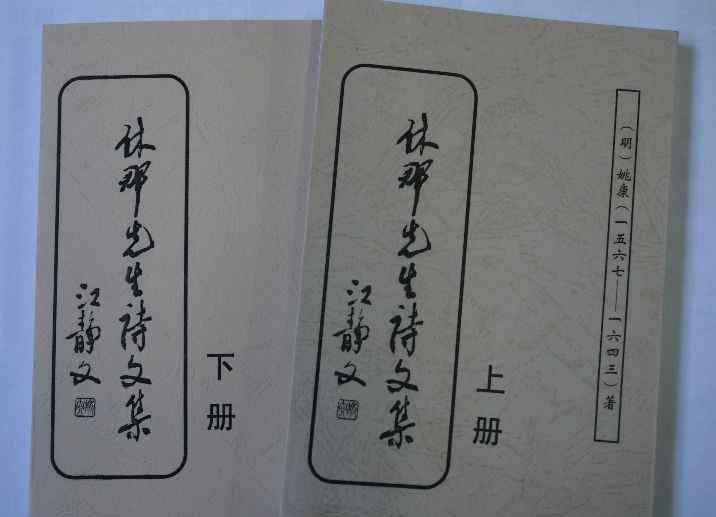 （明）姚康（一五六七——一六四三）著
休那先生詩文集
江靜文
上册
休那先生詩文集
江靜文
下册